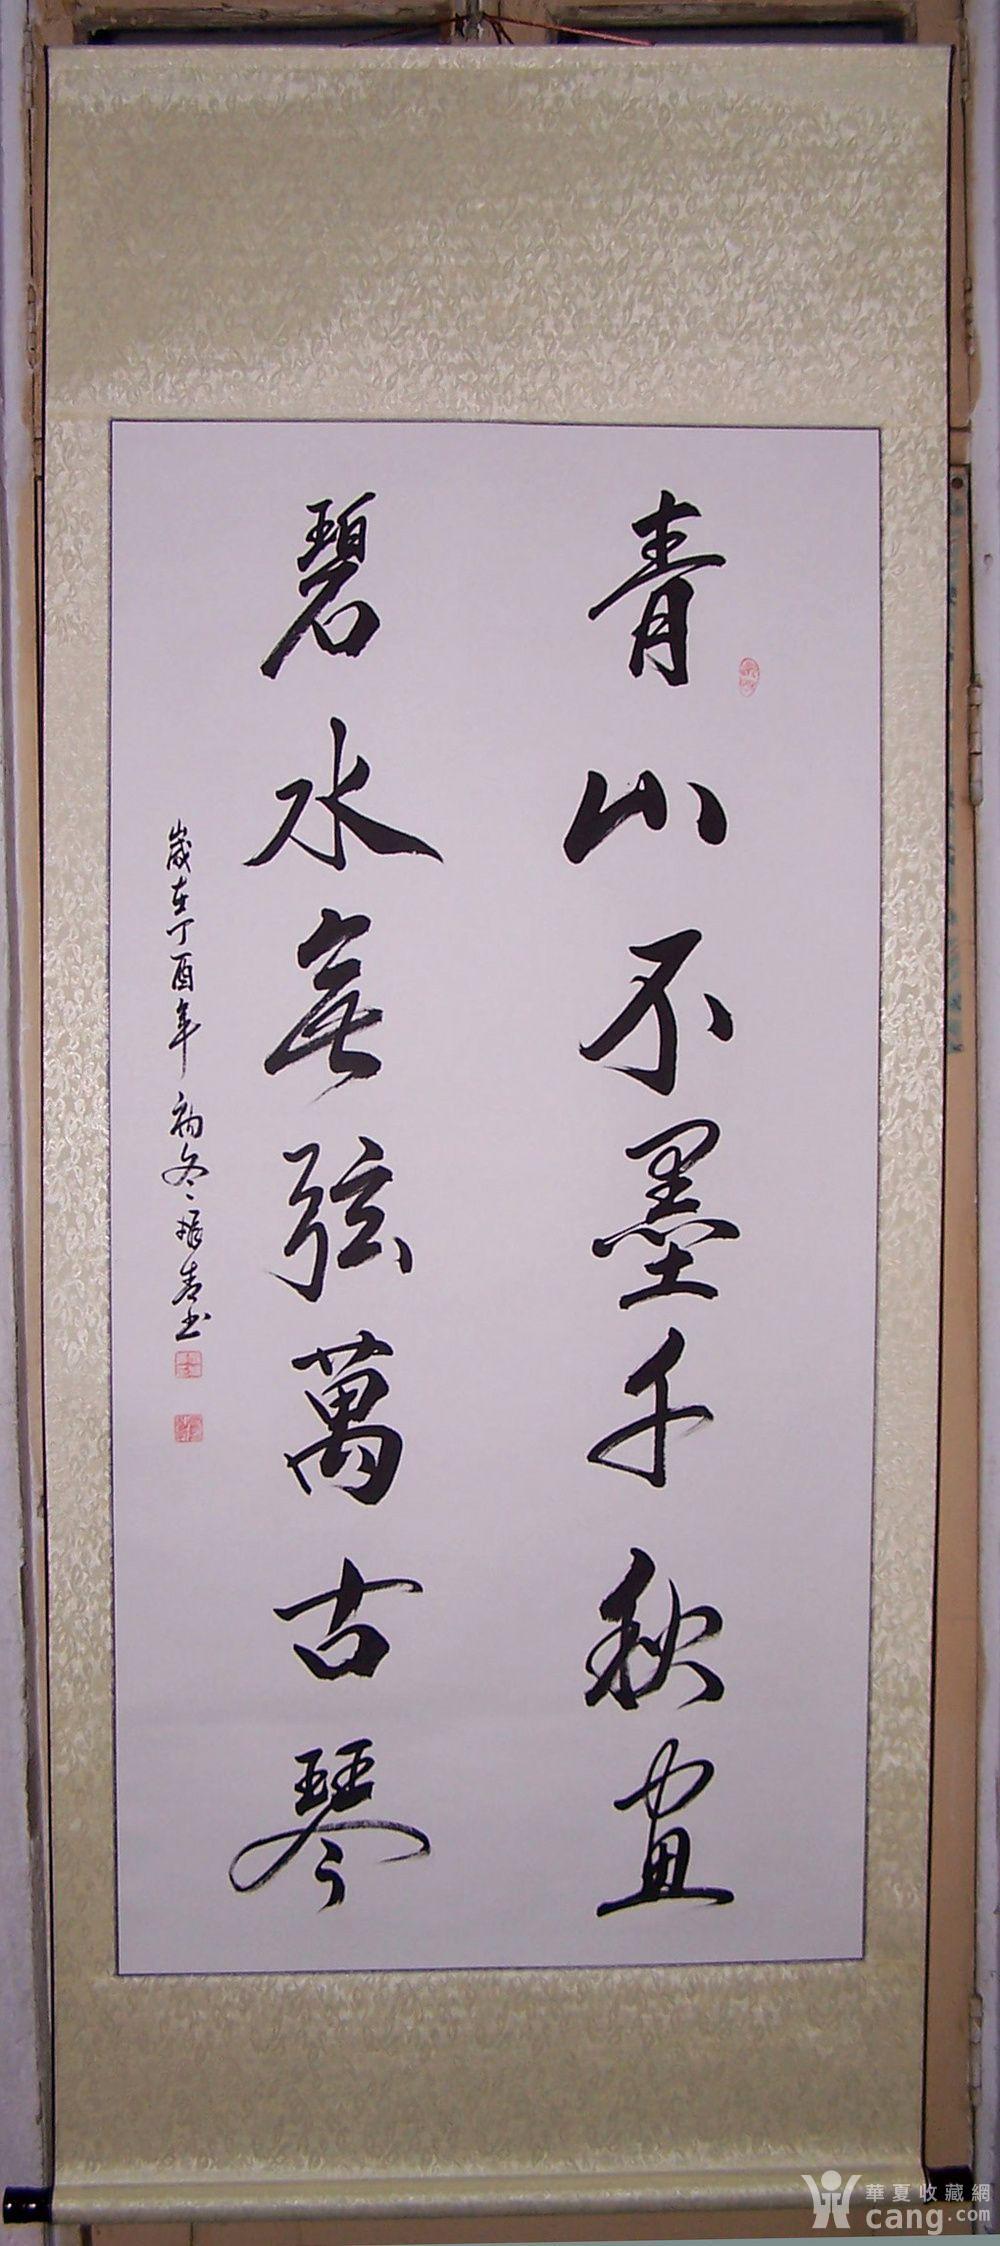 青山不墨千秋画
碧水無弦萬古琴
歲在丁酉年初冬振青书
華夏收藏網
cang.com